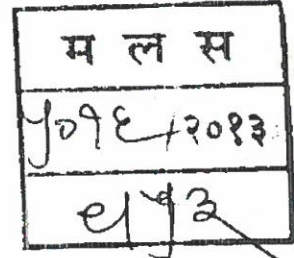 म ल स
५०१६/२०१३
९५३